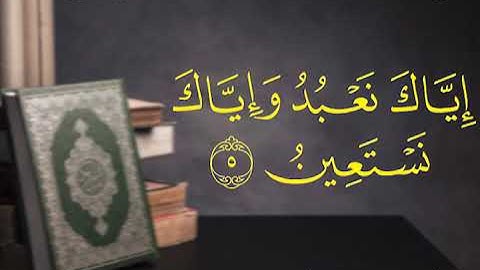 إِيَّاكَ نَعْبُدُ وَإِيَّاكَ
نَسْتَعِينُ ٥